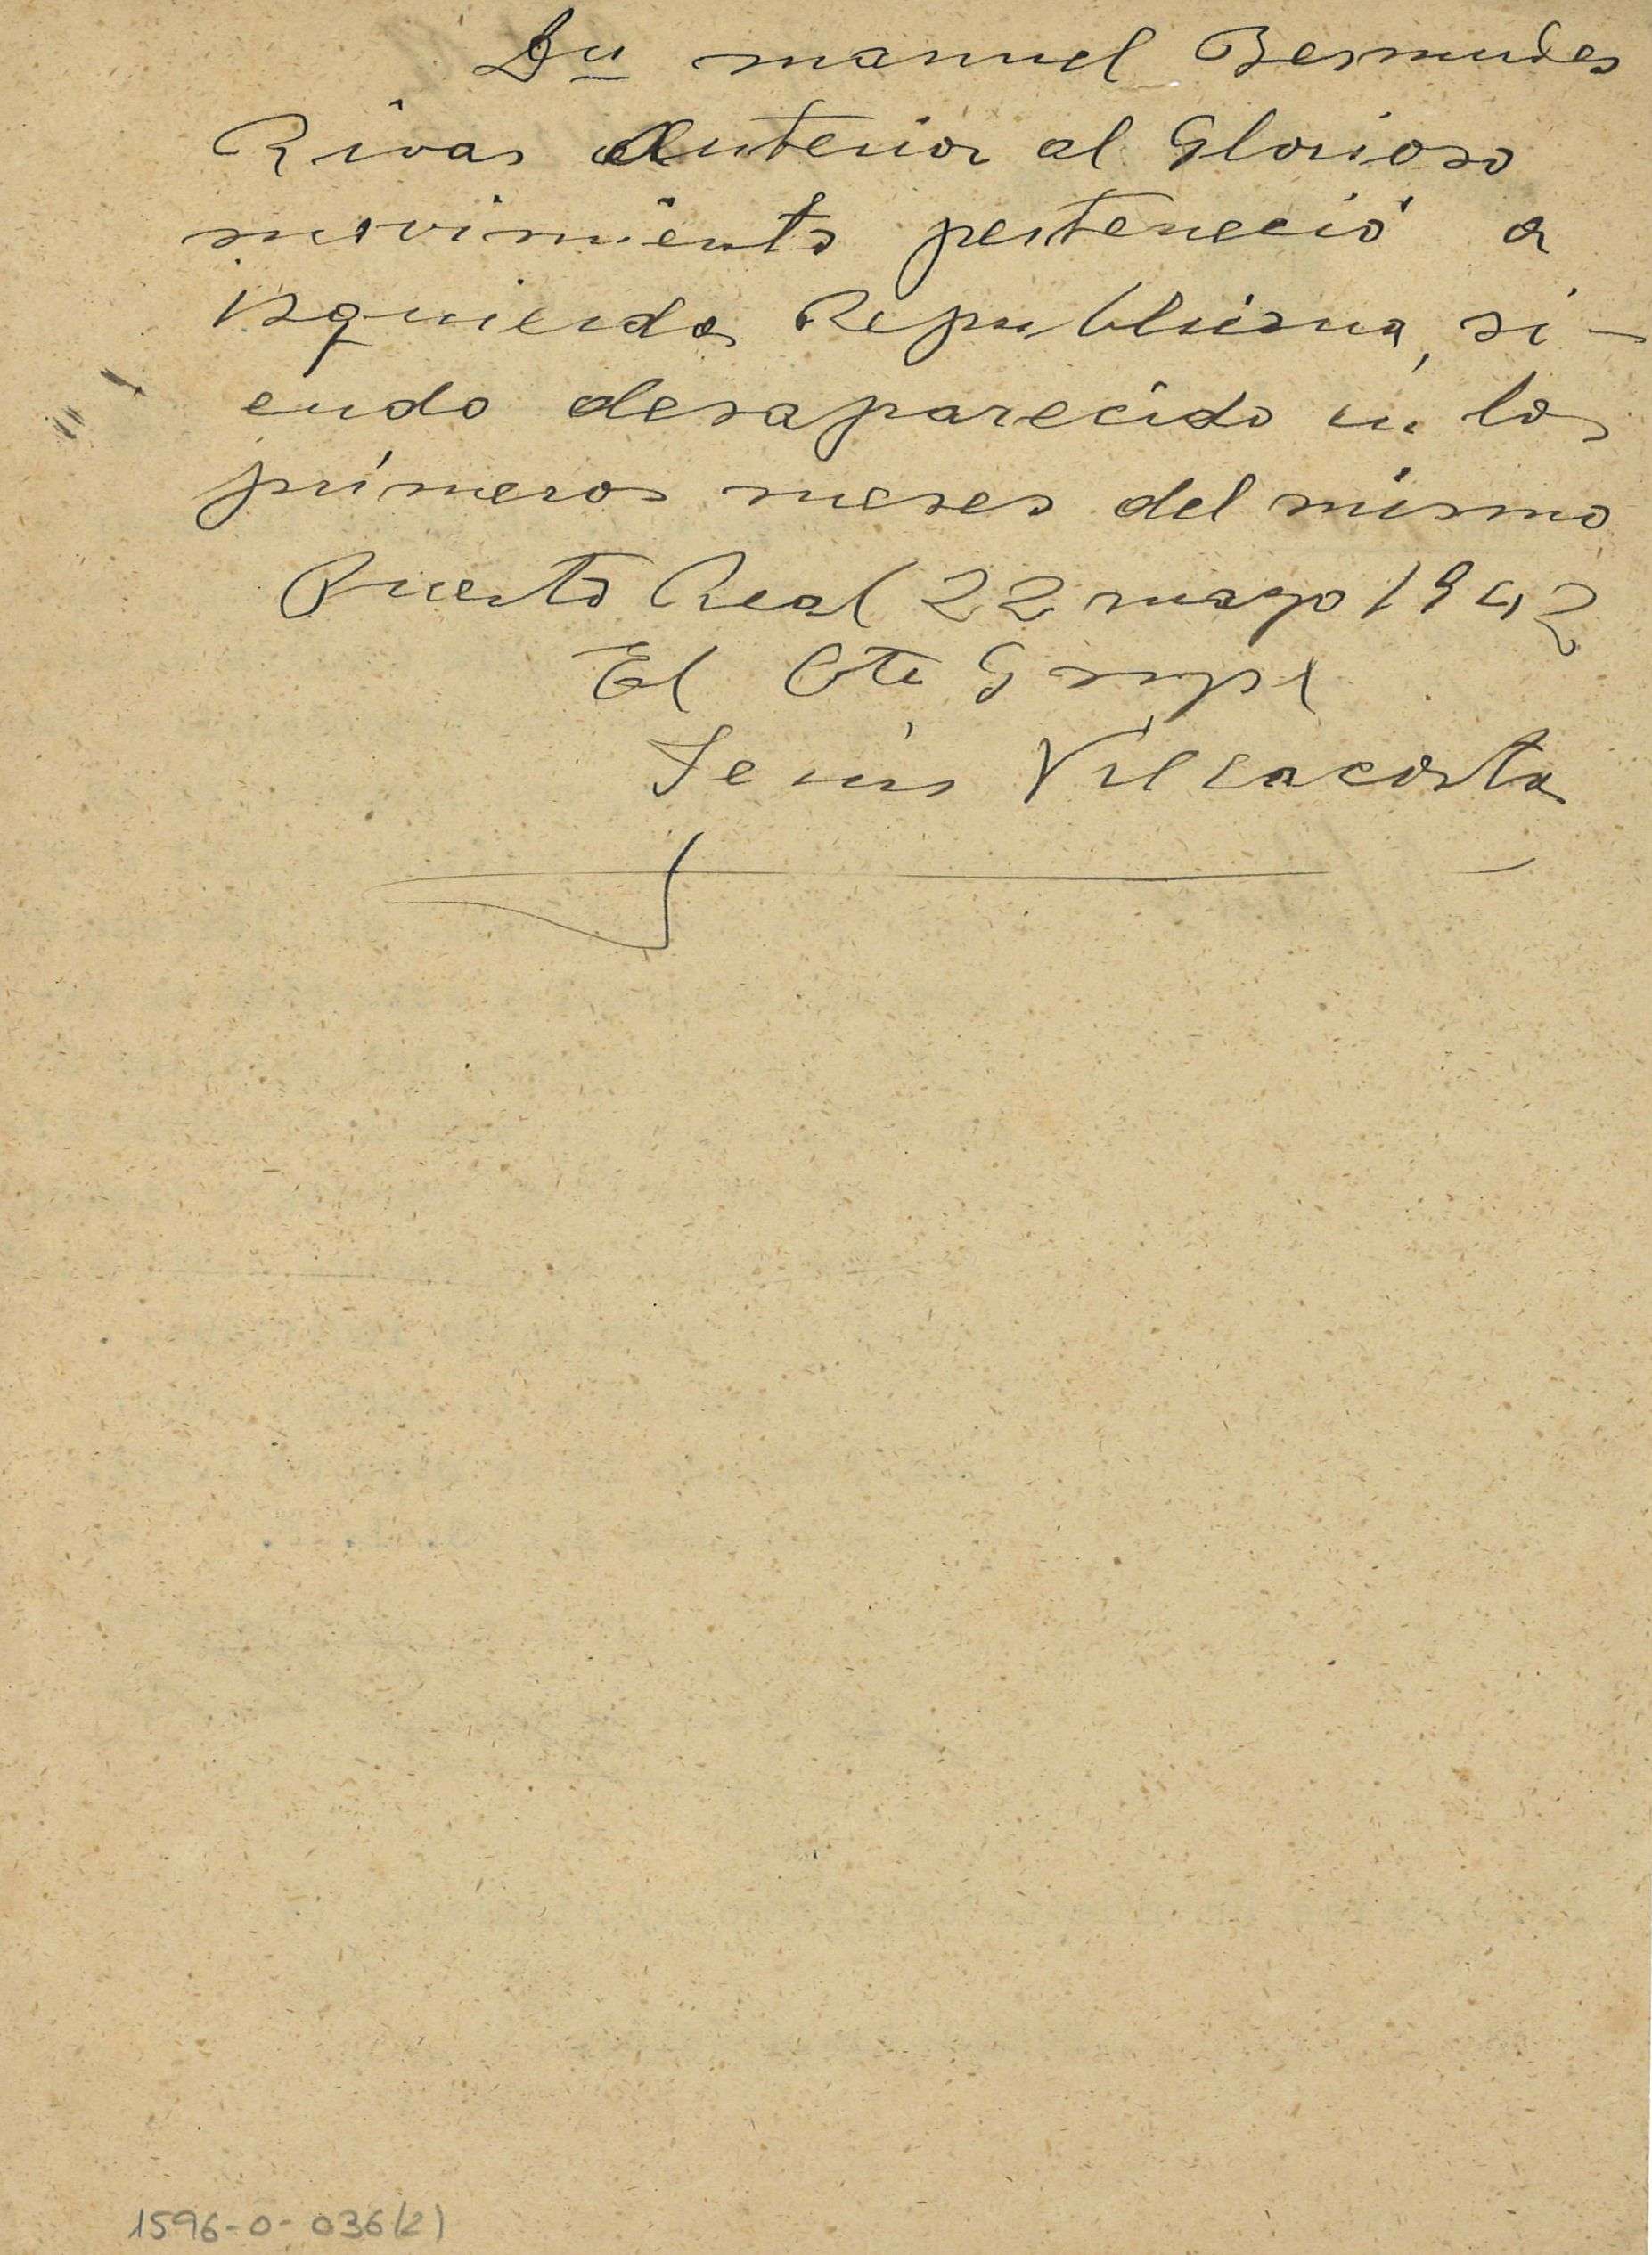 Dn manuel Bermudes
Rivas Anterior al Glorioso
movimiento perteneció a
izquierda Republicana, si-
endo desaparecido en los
primeros meses del mismo
Puerto Real 22 mayo 1942
El Cte
Jesús Villacorta
1596-0-036(2)